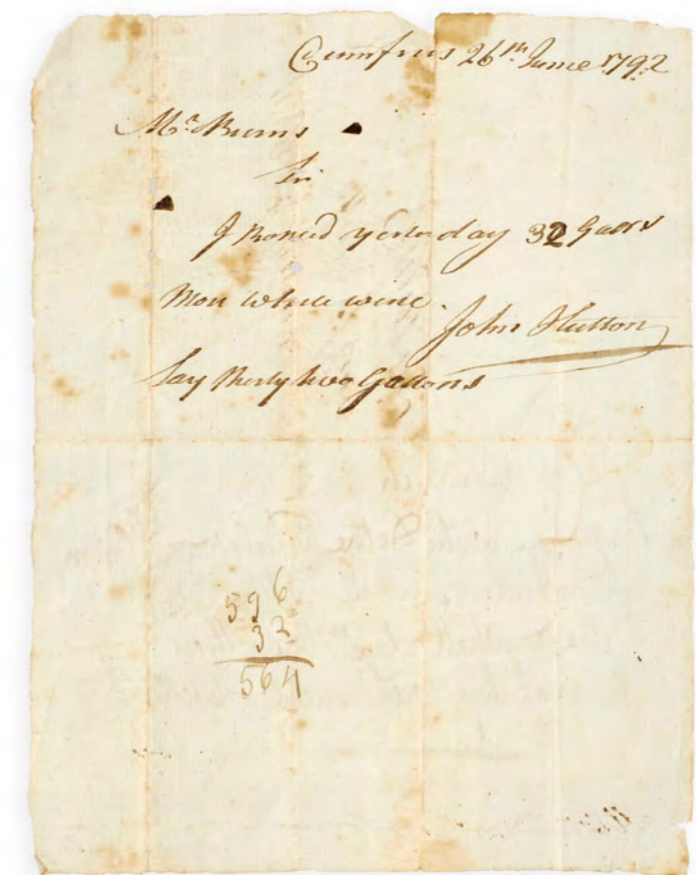 Dumfries 26th June 1792
Mr. Burns
Sir
I Racked yesterday 32 Gallns
More white wine.
John Hutton
Say Thirty two Gallons
596
32
564